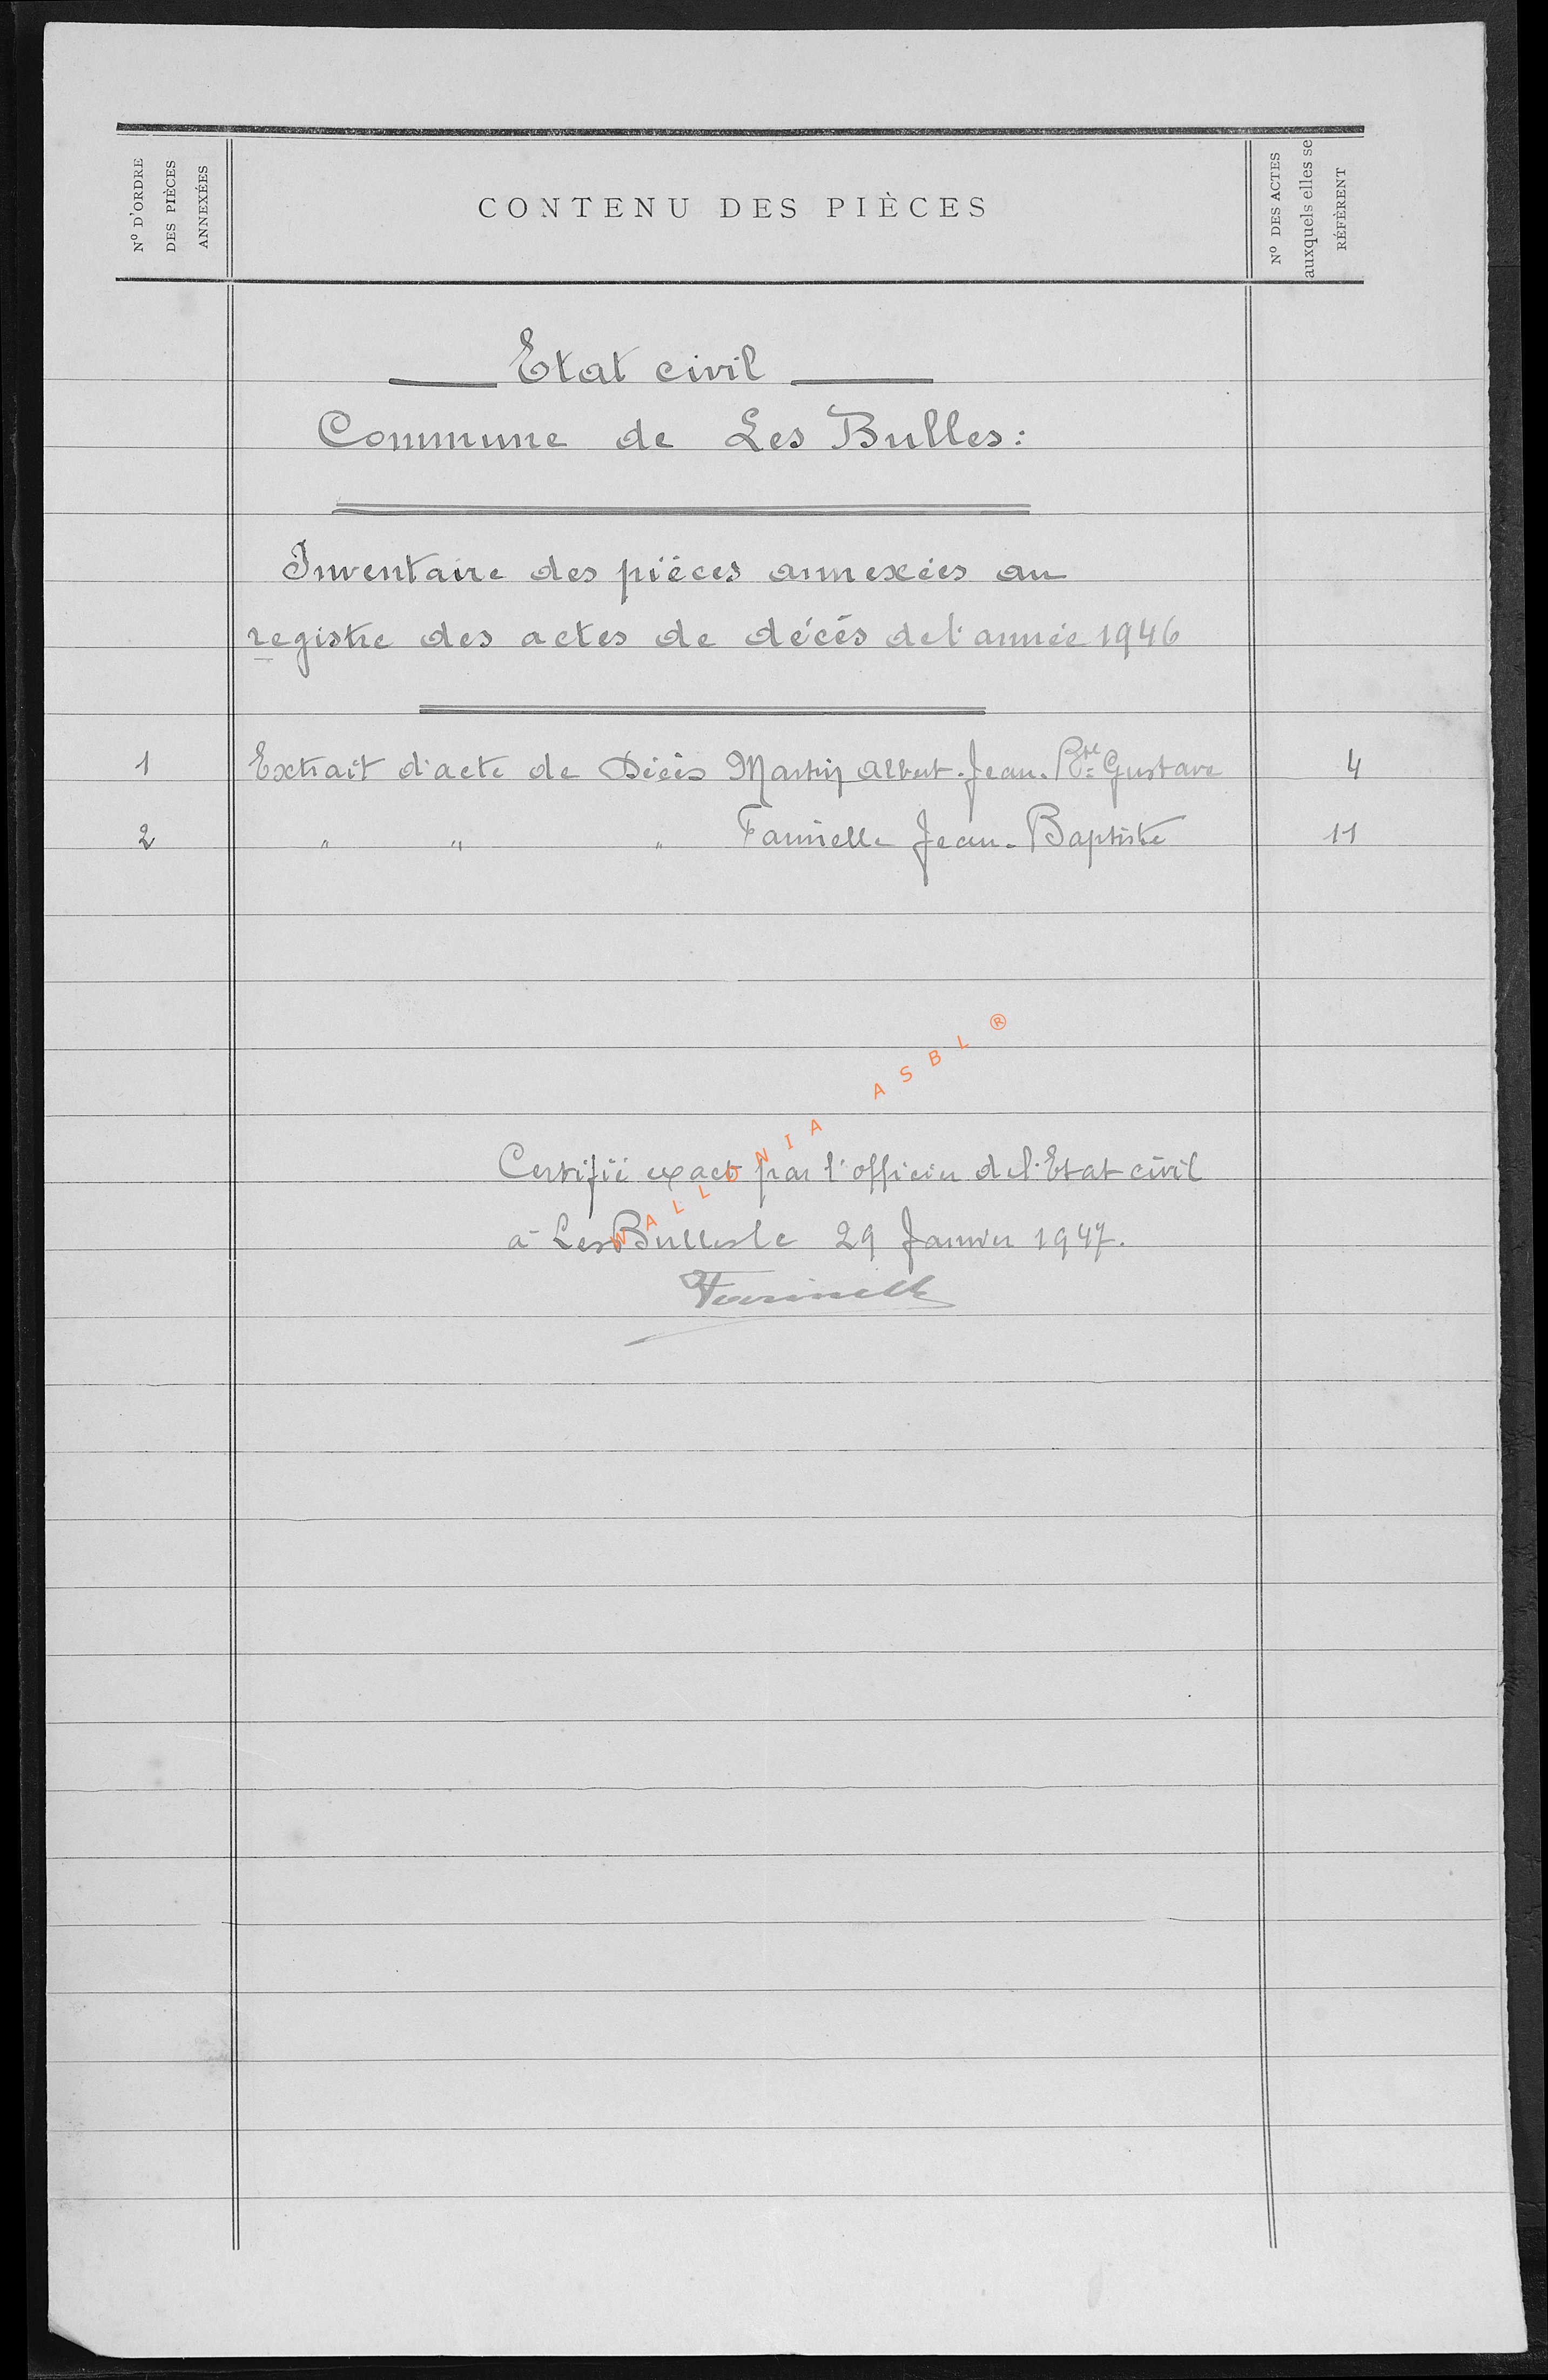 Nº D'ORDRE
DES PIÈCES
ANNEXÉES
CONTENU DES PIÈCES
Nº DES ACTES
auxquels elles se
RÉFÈRENT
Etat civil
Commune de Les Bulles:
Inventaire des pièces annexées au
registre des actes de décès de l'année 1946
1 Extrait d'acte de Décès Martin Albert. Jean. Bte Gustave 4
2 " " " Jean-Baptiste 11
Certifié exact par l'officier de l'Etat civil
à Les Bulles le 29 Janvier 1947.
WALLONIA ASBL ®